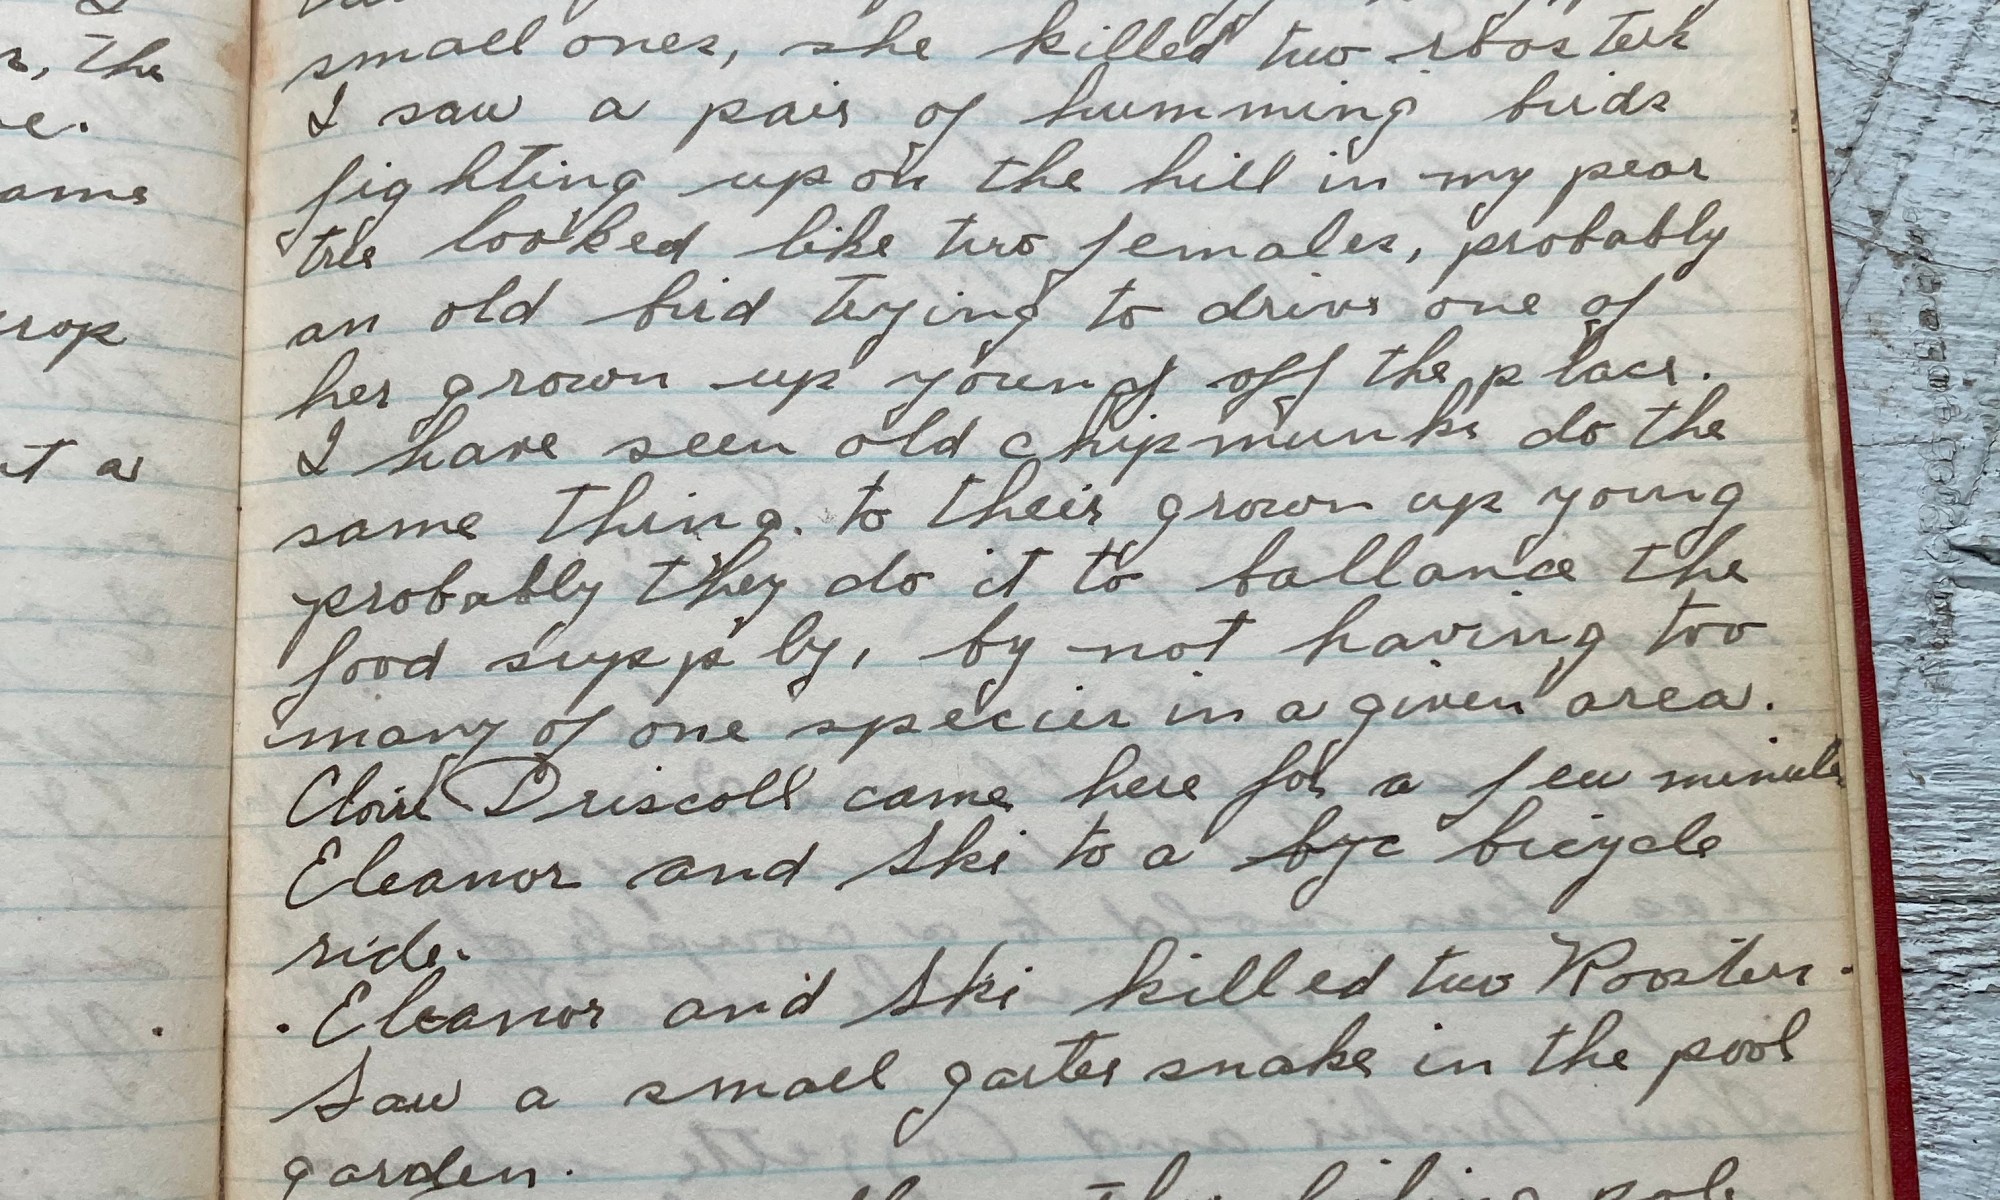 r, the
ame
rop
t a
small ones, she killed two roosters
I saw a pair of humming birds
fighting up on the hill in my pear
tree looked like two females, probably
an old bird trying to drive one of
her grown up young off the place.
I have seen old chipmunks do the
same thing. to their grown up young
probably they do it to ballance the
food supply, by not having too
many of one species in a given area.
Claire Driscoll came here for a few minutes
Eleanor and Ski to a byc bicycle
ride.
. Eleanor and Ski killed two Roosters.
Saw a small garter snake in the pool
garden.